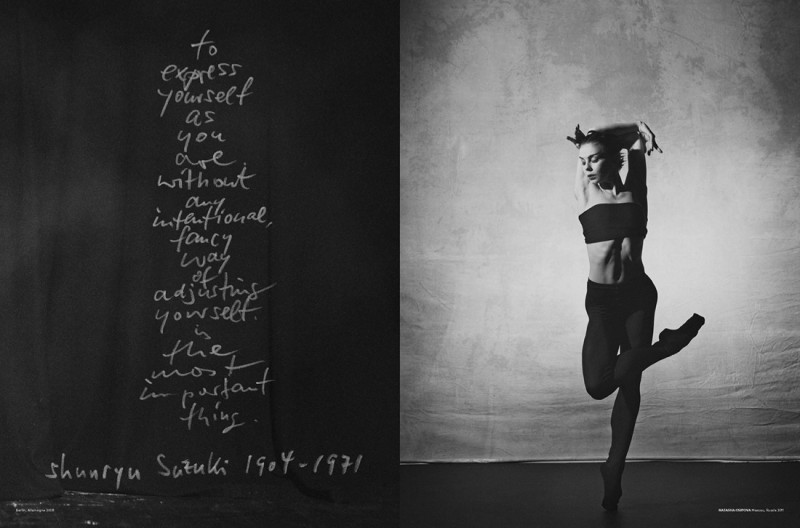 to
express
yourself
as
you
are.
without
any
intentional,
fancy
way
of
adjusting
yourself.
is
the
most
important
thing.
shunryu Suzuki 1904-1971
Berlin, Allemagne 2018
NATASHA OSIPOVA Moscou, Russie 2011